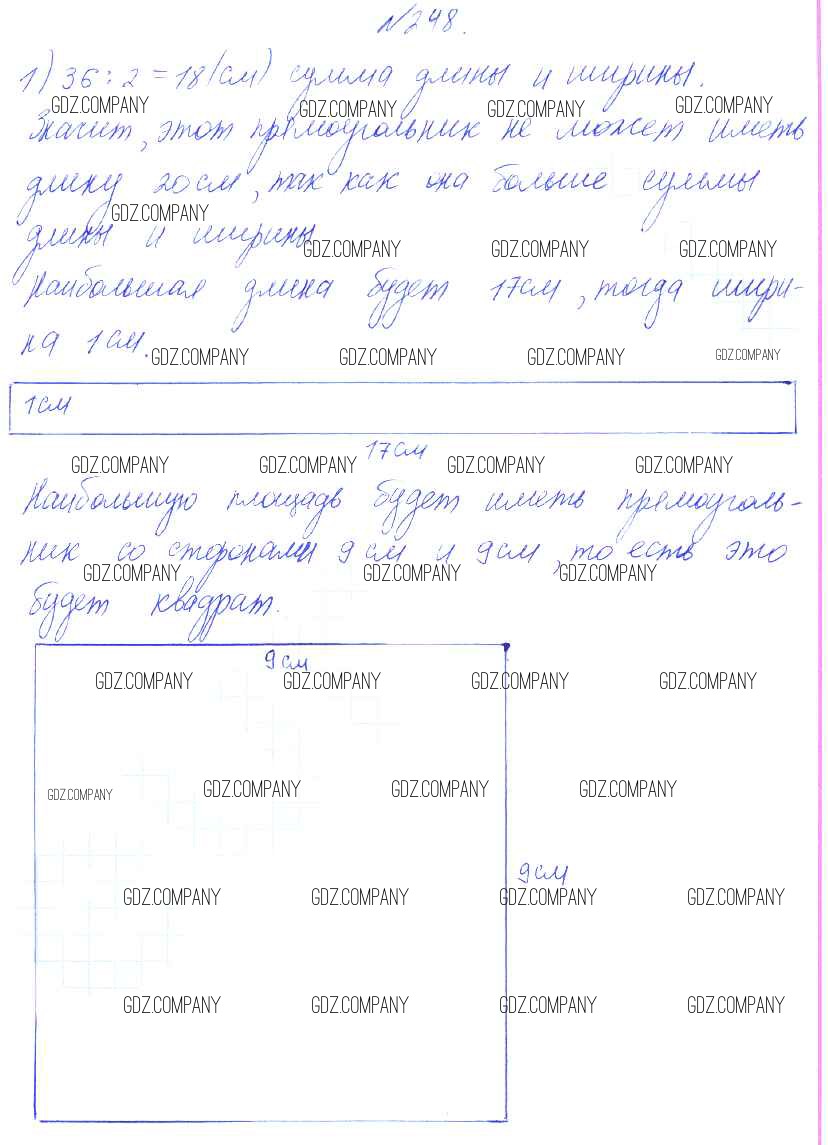 №248.
1) 36 : 2 = 18 (см) сумма длины и ширины.
GDZ.COMPANY GDZ.COMPANY GDZ.COMPANY GDZ.COMPANY
Значит, этот прямоугольник не может иметь
длину 20 см, так как она больше суммы
GDZ.COMPANY
длины и ширины.
GDZ.COMPANY GDZ.COMPANY GDZ.COMPANY
Наибольшая длина будет 17 см, тогда шири-
на 1 см.
GDZ.COMPANY GDZ.COMPANY GDZ.COMPANY GDZ.COMPANY
1 см
17 см
GDZ.COMPANY GDZ.COMPANY GDZ.COMPANY GDZ.COMPANY
Наибольшую площадь будет иметь прямоуголь-
ник со сторонами 9 см и 9 см, то есть это
GDZ.COMPANY GDZ.COMPANY GDZ.COMPANY
будет квадрат.
9 см
GDZ.COMPANY GDZ.COMPANY GDZ.COMPANY GDZ.COMPANY
GDZ.COMPANY GDZ.COMPANY GDZ.COMPANY GDZ.COMPANY
9 см
GDZ.COMPANY GDZ.COMPANY GDZ.COMPANY GDZ.COMPANY
GDZ.COMPANY GDZ.COMPANY GDZ.COMPANY GDZ.COMPANY